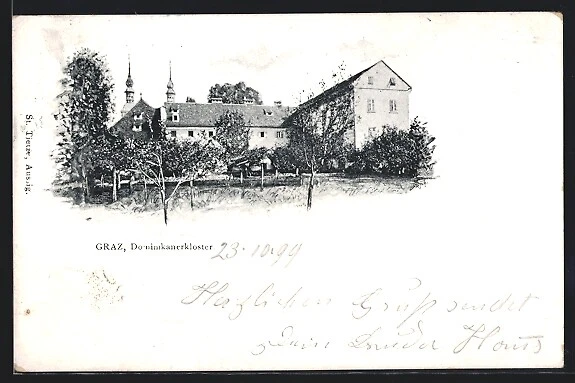 St. Tietze, Aussig.
GRAZ, Dominikanerkloster 23·10·99
Herzlichen Gruß sendet
Dein Bruder Hans